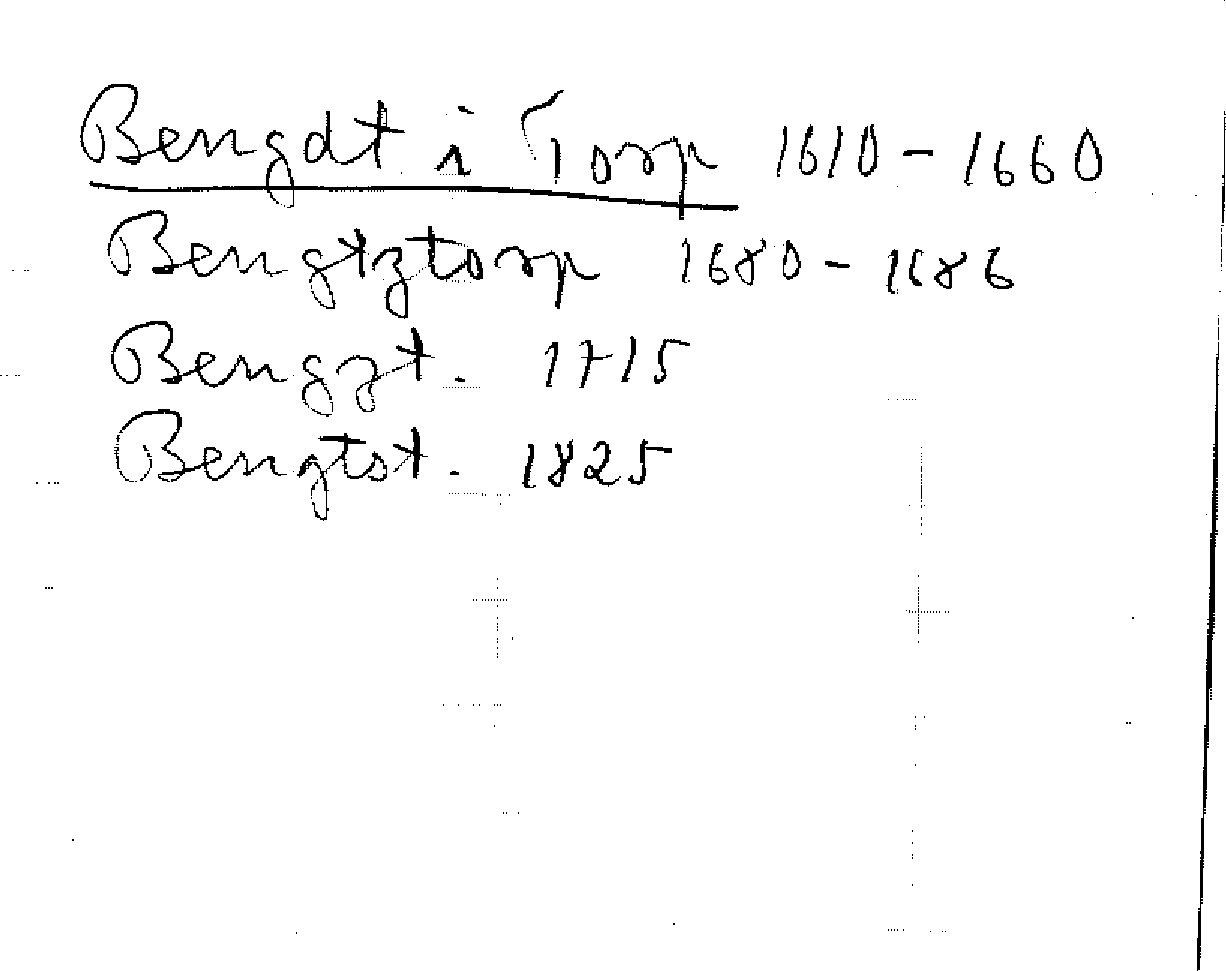 Bengdt i Torp 1610 - 1660
Bengtztorp 1680 - 1686
Bengzt. 1715
Bengtst. 1825